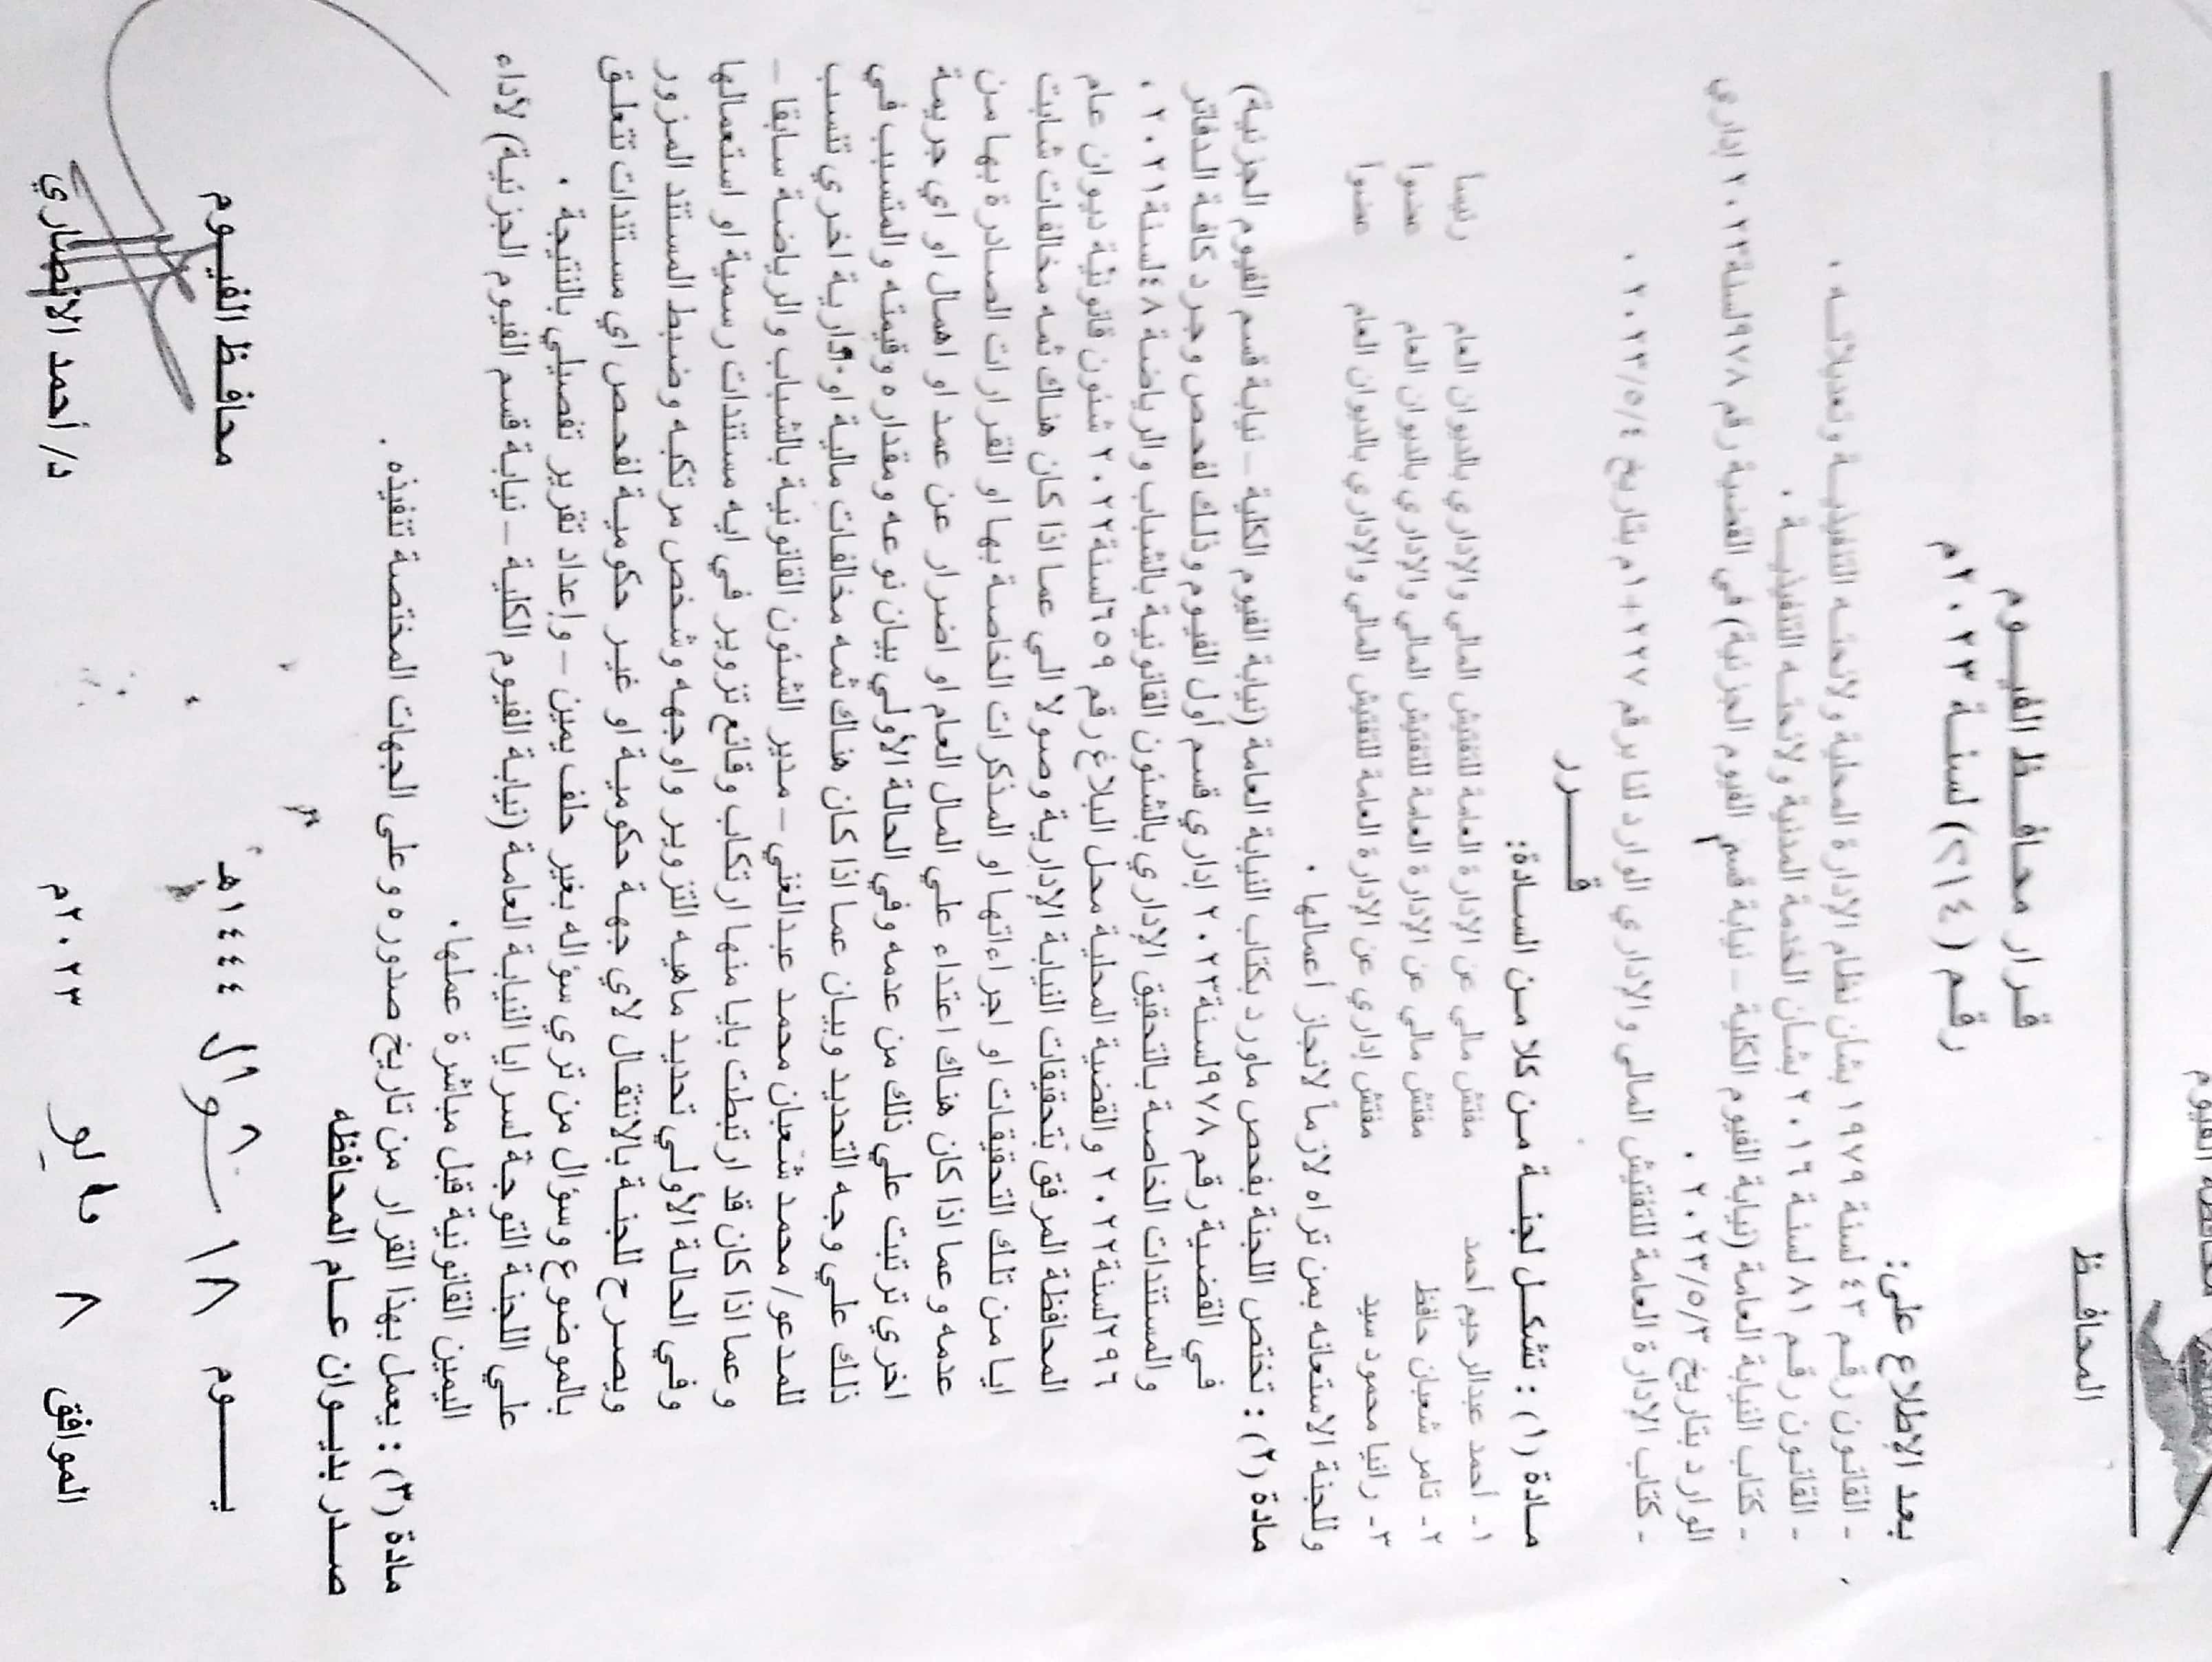 محافظة الفيوم
المحافظ
قرار محافظ الفيوم
رقم (٢١٤) لسنة ٢٠٢٣م
بعد الإطلاع على:
- القانون رقم ٤٣ لسنة ١٩٧٩ بشأن نظام الإدارة المحلية ولائحته التنفيذية وتعديلاته .
- القانون رقم ٨١ لسنة ٢٠١٦ بشأن الخدمة المدنية ولائحته التنفيذية .
- كتاب النيابة العامة (نيابة الفيوم الكلية – نيابة قسم الفيوم الجزئية) في القضية رقم ٩٧٨ لسنة ٢٠٢٣ إداري
الوارد بتاريخ ٢٠٢٣/٥/٣ .
- كتاب الإدارة العامة للتفتيش المالي والإداري الوارد لنا برقم ٢٢٧+١م بتاريخ ٢٠٢٣/٥/٤ .
قـــرر
مادة (١) : تشكل لجنة من كلا من السادة:
١- أحمد عبدالرحيم أحمد مفتش مالي عن الإدارة العامة للتفتيش المالي والإداري بالديوان العام رئيسأ
٢- تامر شعبان حافظ مفتش مالي عن الإدارة العامة للتفتيش المالي والإداري بالديوان العام عضوأ
٣- رانيا محمود سيد مفتش إداري عن الإدارة العامة للتفتيش المالي والإداري بالديوان العام عضوأ
وللجنة الاستعانه بمن تراه لازماً لانجاز أعمالها .
مادة (٢) : تختص اللجنة بفحص ماورد بكتاب النيابة العامة (نيابة الفيوم الكلية – نيابة قسم الفيوم الجزئية)
في القضية رقم ٩٧٨ لسنة ٢٠٢٣ إداري قسم أول الفيوم وذلك لفحص وجرد كافة الدفاتر
والمستندات الخاصة بالتحقيق الإداري بالشئون القانونية بالشباب والرياضة ٤٨ لسنة ٢٠٢١ ،
٢٩٦ لسنة ٢٠٢٢ والقضية المحلية محل البلاغ رقم ٦٥٩ لسنة ٢٠٢٢ شئون قانونية ديوان عام
المحافظة المرفق بتحقيقات النيابة الإدارية وصولا الي عما اذا كان هناك ثمه مخالفات شابت
ايا من تلك التحقيقات او اجراءاتها او المذكرات الخاصة بها او القرارات الصادرة بها من
عدمه وعما اذا كان هناك اعتداء علي المال العام او اضرار عن عمد او اهمال او اي جريمة
اخري ترتبت علي ذلك من عدمه وفي الحالة الأولي بيان نوعه ومقداره وقيمته والمتسبب في
ذلك علي وجه التحديد وبيان عما اذا كان هناك ثمه مخالفات مالية او ادارية اخري تنسب
للمدعو/ محمد شعبان محمد عبدالغني – مدير الشئون القانونية بالشباب والرياضة سابقا –
وعما اذا كان قد ارتبطت بايا منها ارتكاب وقائع تزوير في ايه مستندات رسمية او استعمالها
وفي الحالة الأولي تحديد ماهيه التزوير واوجهه وشخص مرتكبه وضبط المستند المزور
ويصرح للجنة بالانتقال لاي جهة حكومية او غير حكومية لفحص اي مستندات تتعلق
بالموضوع وسؤال من تري سؤاله بغير حلف يمين – وإعداد تقرير تفصيلي بالنتيجة .
علي اللجنة التوجة لسرايا النيابة العامة (نيابة الفيوم الكلية – نيابة قسم الفيوم الجزئية) لأداء
اليمين القانونية قبل مباشرة عملها.
مادة (٣) : يعمل بهذا القرار من تاريخ صدوره وعلى الجهات المختصة تنفيذه .
صدر بديوان عام المحافظه
يوم ١٨ شوال ١٤٤٤هـ
محافظ الفيوم
الموافق ٨ مايو ٢٠٢٣م
د/ أحمد الأنصاري